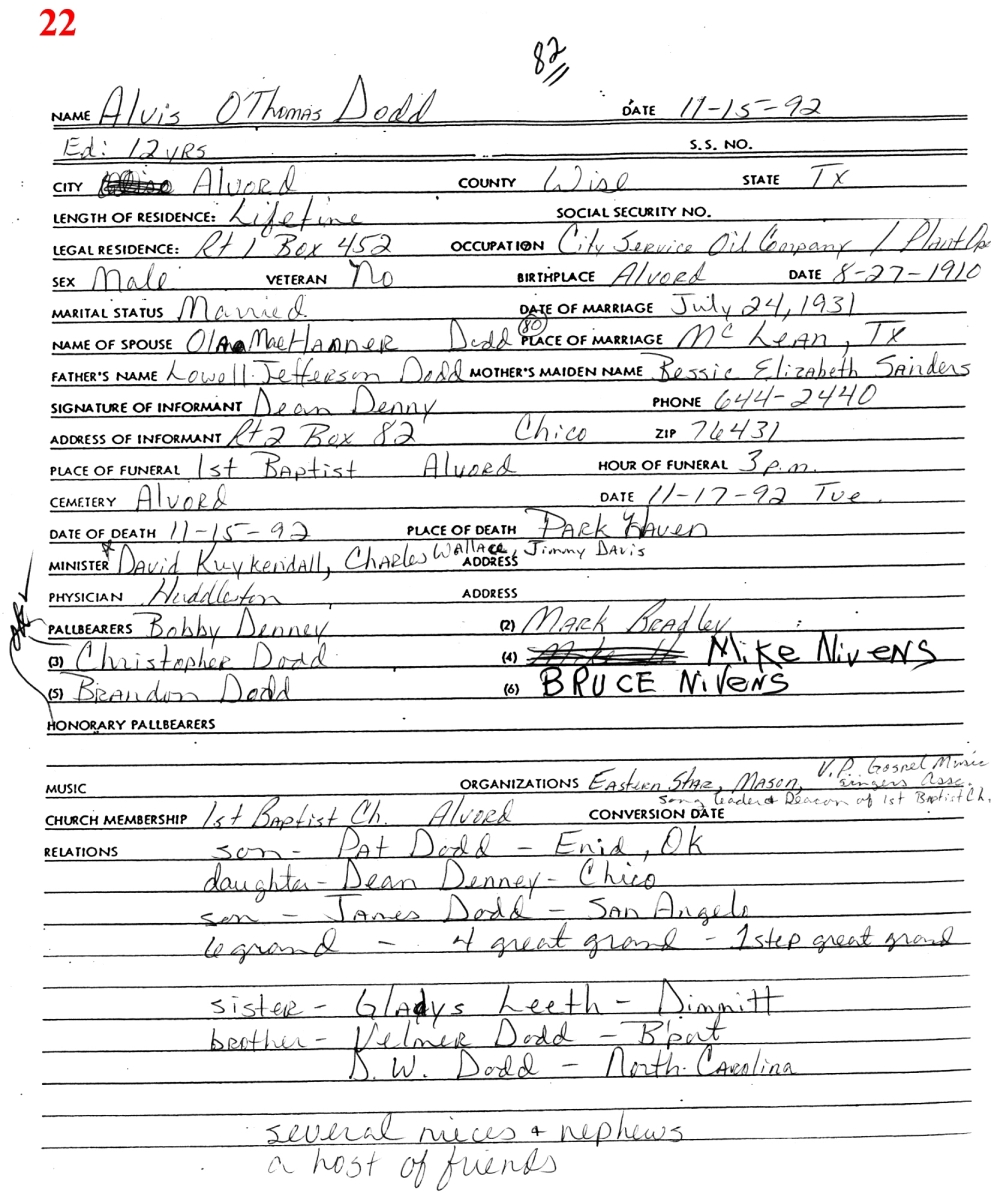 22
82
NAME Alvis O'Thomas Dodd DATE 11-15-92
Ed: 12 YRS S.S. NO.
CITY Alvord COUNTY Wise STATE TX
LENGTH OF RESIDENCE: Lifetime SOCIAL SECURITY NO.
LEGAL RESIDENCE: Rt 1 Box 452 OCCUPATION City Service Oil Company / Plant Op
SEX Male VETERAN No BIRTHPLACE Alvord DATE 8-27-1910
MARITAL STATUS Married DATE OF MARRIAGE July 24, 1931
NAME OF SPOUSE Ola Mae Hanner Dodd (80) PLACE OF MARRIAGE McLean, TX
FATHER'S NAME Lowell Jefferson Dodd MOTHER'S MAIDEN NAME Bessie Elizabeth Sanders
SIGNATURE OF INFORMANT Dean Denny PHONE 644-2440
ADDRESS OF INFORMANT Rt 2 Box 82 Chico ZIP 76431
PLACE OF FUNERAL 1st Baptist Alvord HOUR OF FUNERAL 3 p.m.
CEMETERY Alvord DATE 11-17-92 Tue.
DATE OF DEATH 11-15-92 PLACE OF DEATH Park Haven
MINISTER David Kuykendall, Charles Wallace, Jimmy Davis ADDRESS
PHYSICIAN Huddleston ADDRESS
PALLBEARERS Bobby Denney (2) Mark Bradley
(3) Christopher Dodd (4) Mike Nivens
(5) Brandon Dodd (6) BRUCE NIVENS
HONORARY PALLBEARERS
MUSIC ORGANIZATIONS Eastern Star, Mason, V.P. Gospel Music Singers Assc.
Song leader & Deacon of 1st Baptist Ch.
CHURCH MEMBERSHIP 1st Baptist Ch. Alvord CONVERSION DATE
RELATIONS son - Pat Dodd - Enid, OK
daughter - Dean Denney - Chico
son - James Dodd - San Angelo
6 grand - 4 great grand - 1 step great grand
sister - Gladys Leeth - Dimmitt
brother - Velmer Dodd - B'port
D. W. Dodd - North Carolina
several nieces + nephews
a host of friends